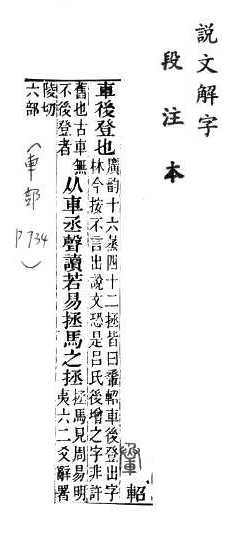 說文解字
段注本
軺
車後登也
廣韵十六蒸四十二拯皆曰𨋬軺車後登出字
林今按不言出說文恐是呂氏後增之字非許
舊也古車無
不後登者
从車丞聲讀若易拯馬之拯
拯馬見周易明
夷六二爻辭署
陵切
六部
(車部 P734)